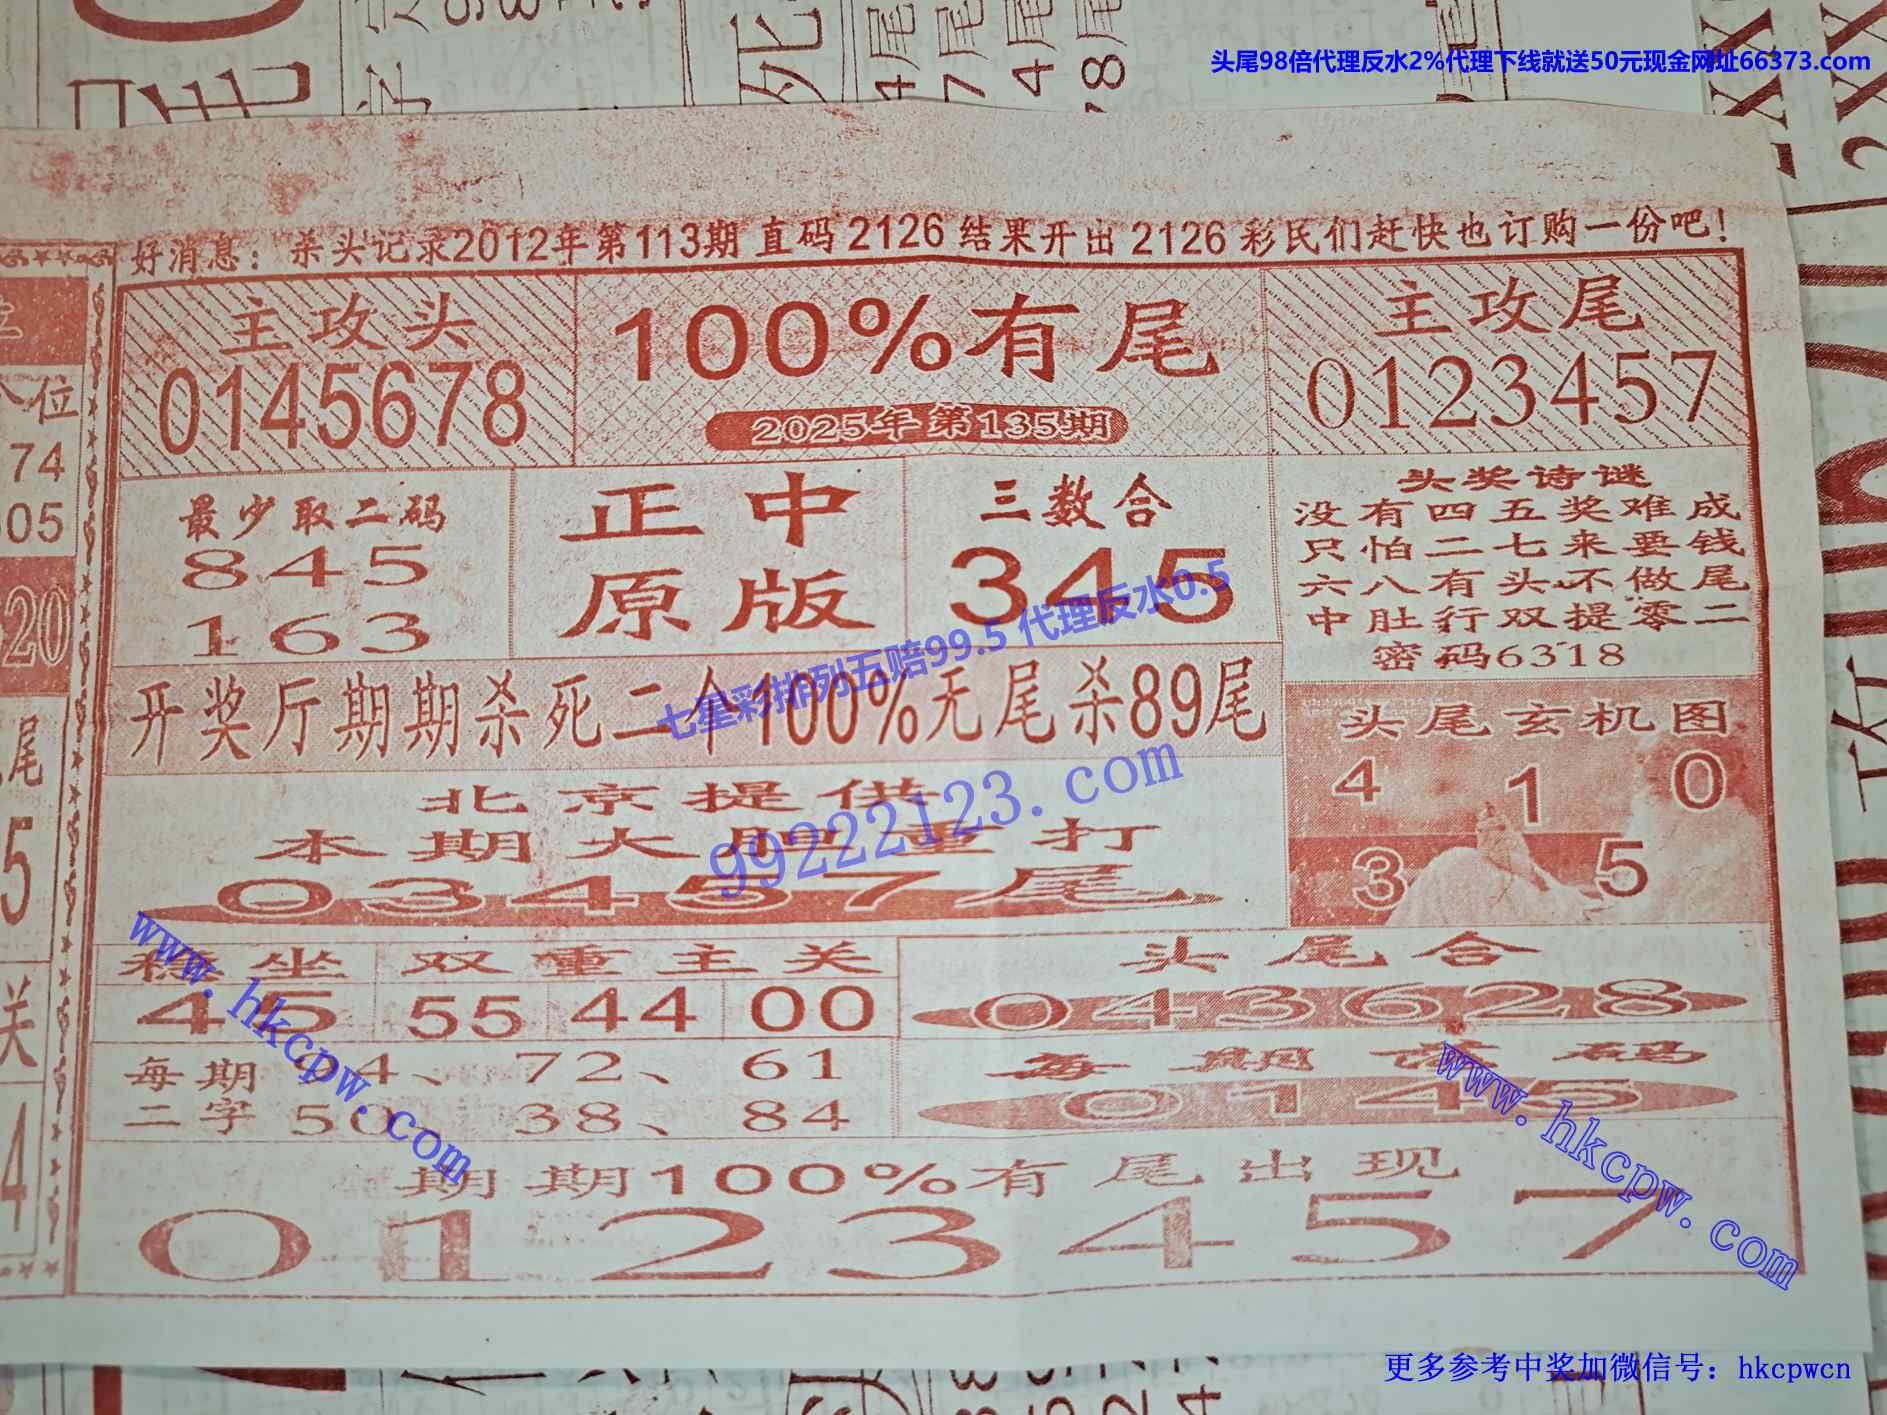 头尾98倍代理反水2%代理下线就送50元现金网址66373.com
好消息：杀头记录2012年第113期直码2126结果开出2126彩民们赶快也订购一份吧！
主攻头
0145678
100%有尾
2025年第135期
主攻尾
0123457
最少取二码
845
163
正中
原版
三数合
345
头奖诗谜
没有四五奖难成
只怕二七来要钱
六八有头不做尾
中肚行双提零二
密码6318
开奖厅期期杀死二个100%无尾杀89尾
七星彩排列五赔99.5 代理反水0.5
99222123.com
头尾玄机图
4 1 0
3 5
北京提供
本期大胆重打
03457尾
稳坐
45
双重主关
55 44 00
头尾合
043628
每期
二字
4、72、61
50 38、84
每期 码
0145
www.hkcpw.com
www.hkcpw.com
期期100%有尾出现
0123457
更多参考中奖加微信号：hkcpwcn
位
74
05
20
尾
5
关
4
4尾
7尾
4尾
8尾